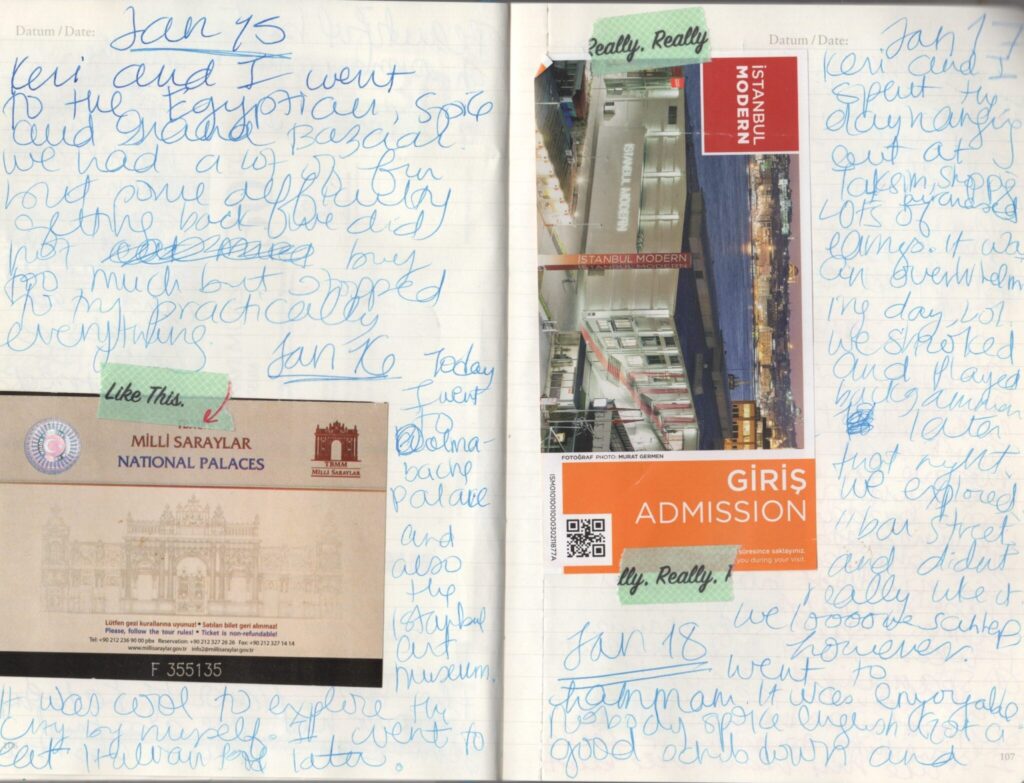 Datum / Date:
Jan 15
Keri and I went
to the Egyptian, Spice
and Grand Bazaar.
we had a lot of fun
but some difficulty
getting back. we did
not buy
too much but stopped
to try practically
everything.
Jan 16
Today
I went
to
Dolma-
bache
palace
and
also
the
istanbul
art
museum.
Like This.
MİLLİ SARAYLAR
NATIONAL PALACES
TBMM
MİLLİ SARAYLAR
Lütfen gezi kurallarına uyunuz! * Satılan bilet geri alınmaz!
Please, follow the tour rules! * Ticket is non-refundable!
Tel: +90 212 236 90 00 pbx Reservation: +90 212 327 26 26 Fax: +90 212 327 14 14
www.millisaraylar.gov.tr info2@millisaraylar.gov.tr
F 355135
It was cool to explore the
city by myself. I went to
eat Italian later.
Really. Really
İSTANBUL
MODERN
İSTANBUL MODERN
İSTANBUL MODERN
FOTOĞRAF PHOTO: MURAT GERMEN
GİRİŞ
ADMISSION
süresince saklayınız.
you during your visit.
lly. Really.
Datum / Date:
Jan 17
Keri and I
spent the
day hanging
out at
Taksim, shopping
lots of
earings. It was
an overwhelm
ing day, lol.
we smoked
and played
backgammon
later
that night
we explored
"bar street
and didnt
really like it
we loooove sahlep
however.
Jan 18
went to
hammam. It was enjoyable
nobody spoke english. Got a
good scrubdown and
107